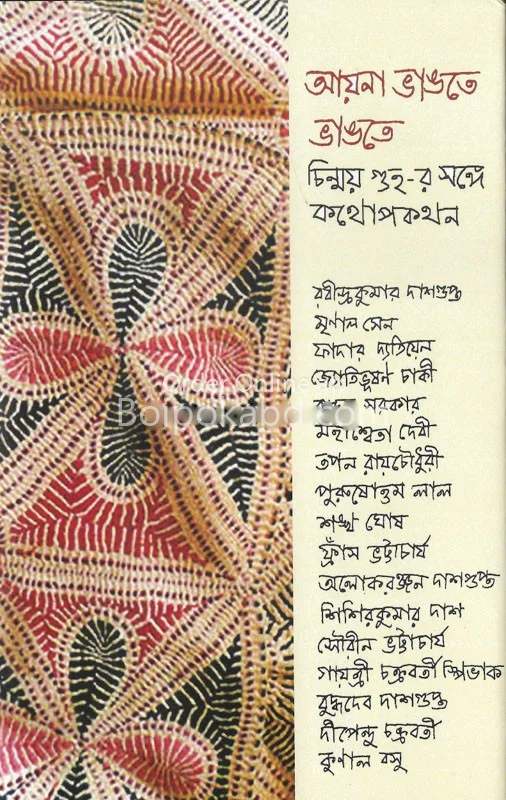 আয়না ভাঙতে
ভাঙতে
চিন্ময় গুহ-র সঙ্গে
কথোপকথন
রবীন্দ্রকুমার দাশগুপ্ত
মৃণাল সেন
ফাদার দ্যতিয়েন
জ্যোতিভূষণ চাকী
Order Online
সরকার
Boipokabd
মহাশ্বেতা দেবী
তপন রায়চৌধুরী
পুরুষোত্তম লাল
শঙ্খ ঘোষ
ফ্রাঁস ভট্টাচার্য
অলোকরঞ্জন দাশগুপ্ত
শিশিরকুমার দাশ
সৌরীন ভট্টাচার্য
গায়ত্রী চক্রবর্তী স্পিভাক
বুদ্ধদেব দাশগুপ্ত
দীপেন্দু চক্রবর্তী
কুণাল বসু